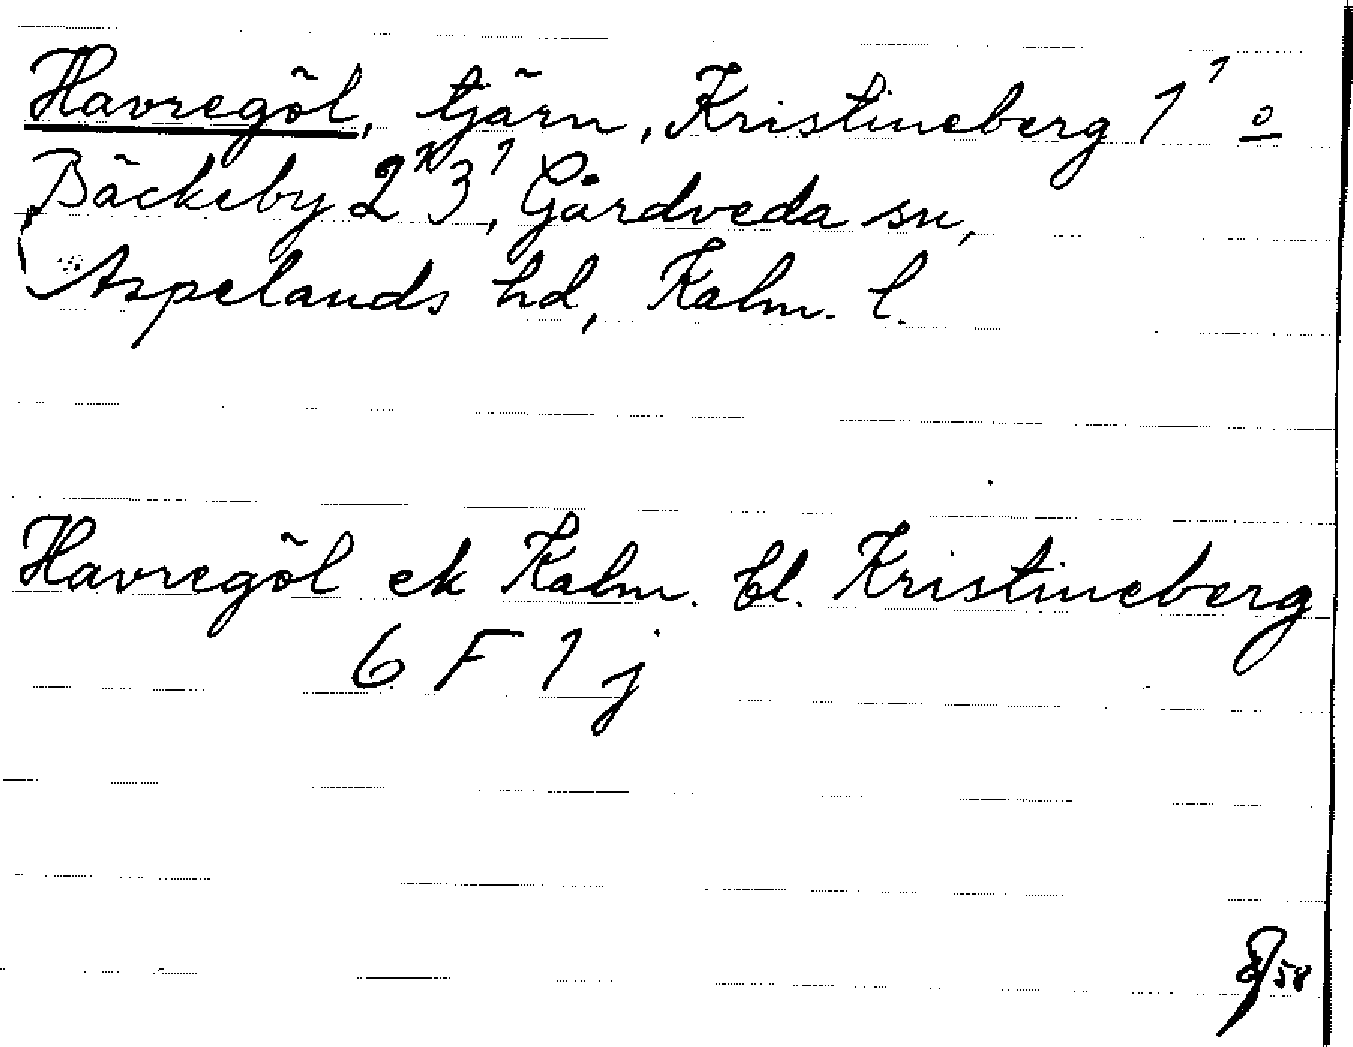 Havregöl, tjärn, Kristineberg 1¹ o
Bäckeby 2 3¹, Gårdveda sn,
Aspelands hd, Kalm. l.
Havregöl ek Kalm. bl. Kristineberg
6 F 1 j
58